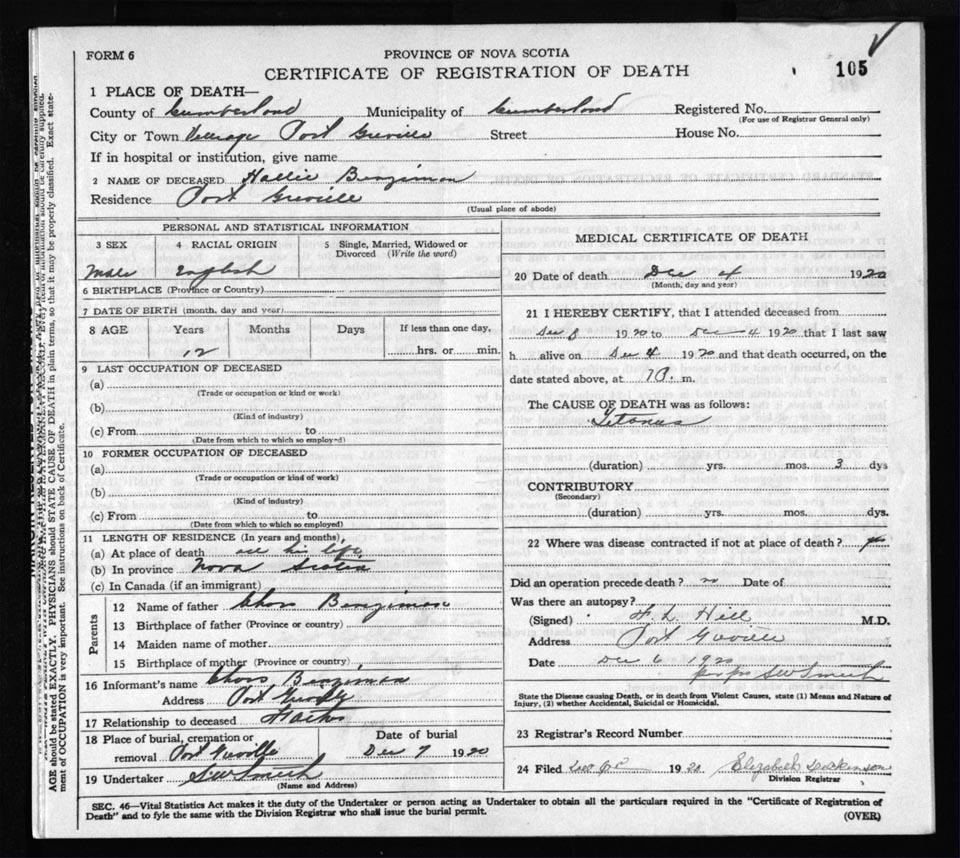 FORM 6
PROVINCE OF NOVA SCOTIA
CERTIFICATE OF REGISTRATION OF DEATH
105
1 PLACE OF DEATH—
County of Cumberland Municipality of Cumberland Registered No.
(For use of Registrar General only)
City or Town Village Port Greville Street House No.
If in hospital or institution, give name
2 NAME OF DECEASED Hallie Benzimon
Residence Port Greville
(Usual place of abode)
PERSONAL AND STATISTICAL INFORMATION
3 SEX 4 RACIAL ORIGIN 5 Single, Married, Widowed or Divorced (Write the word)
Male English
6 BIRTHPLACE (Province or Country)
7 DATE OF BIRTH (month, day and year)
8 AGE Years Months Days If less than one day,
12 hrs. or min.
9 LAST OCCUPATION OF DECEASED
(a)
(Trade or occupation or kind or work)
(b)
(Kind of industry)
(c) From to
(Date from which to which so employed)
10 FORMER OCCUPATION OF DECEASED
(a)
(Trade or occupation or kind of work)
(b)
(Kind of industry)
(c) From to
(Date from which to which so employed)
11 LENGTH OF RESIDENCE (In years and months)
(a) At place of death all his life
(b) In province Nova Scotia
(c) In Canada (if an immigrant)
Parents
12 Name of father Chas Benzimon
13 Birthplace of father (Province or country)
14 Maiden name of mother
15 Birthplace of mother (Province or country)
16 Informant's name Chas Benzimon
Address Port Greville
17 Relationship to deceased Father
18 Place of burial, cremation or Date of burial
removal Port Greville Dec 7 1920
19 Undertaker S W Smith
(Name and Address)
MEDICAL CERTIFICATE OF DEATH
20 Date of death Dec 4 1920
(Month, day and year)
21 I HEREBY CERTIFY, that I attended deceased from
1920 to Dec 4 1920 that I last saw
h alive on Dec 4 1920 and that death occurred, on the
date stated above, at m.
The CAUSE OF DEATH was as follows:
Tetanus
(duration) yrs. mos. 3 dys
CONTRIBUTORY
(Secondary)
(duration) yrs. mos. dys.
22 Where was disease contracted if not at place of death?
Did an operation precede death? no Date of
Was there an autopsy?
(Signed) Hill M.D.
Address Port Greville
Date Dec 6 1920
S W Smith
State the Disease causing Death, or in death from Violent Causes, state (1) Means and Nature of
Injury, (2) whether Accidental, Suicidal or Homicidal.
23 Registrar's Record Number
24 Filed 1920 Elizabeth
Division Registrar
SEC. 46—Vital Statistics Act makes it the duty of the Undertaker or person acting as Undertaker to obtain all the particulars required in the "Certificate of Registration of
Death" and to fyle the same with the Division Registrar who shall issue the burial permit.
(OVER)
AGE should be stated EXACTLY. PHYSICIANS should STATE CAUSE OF DEATH in plain terms, so that it may be properly classified. Exact state-
ment of OCCUPATION is very important. See instructions on back of Certificate.